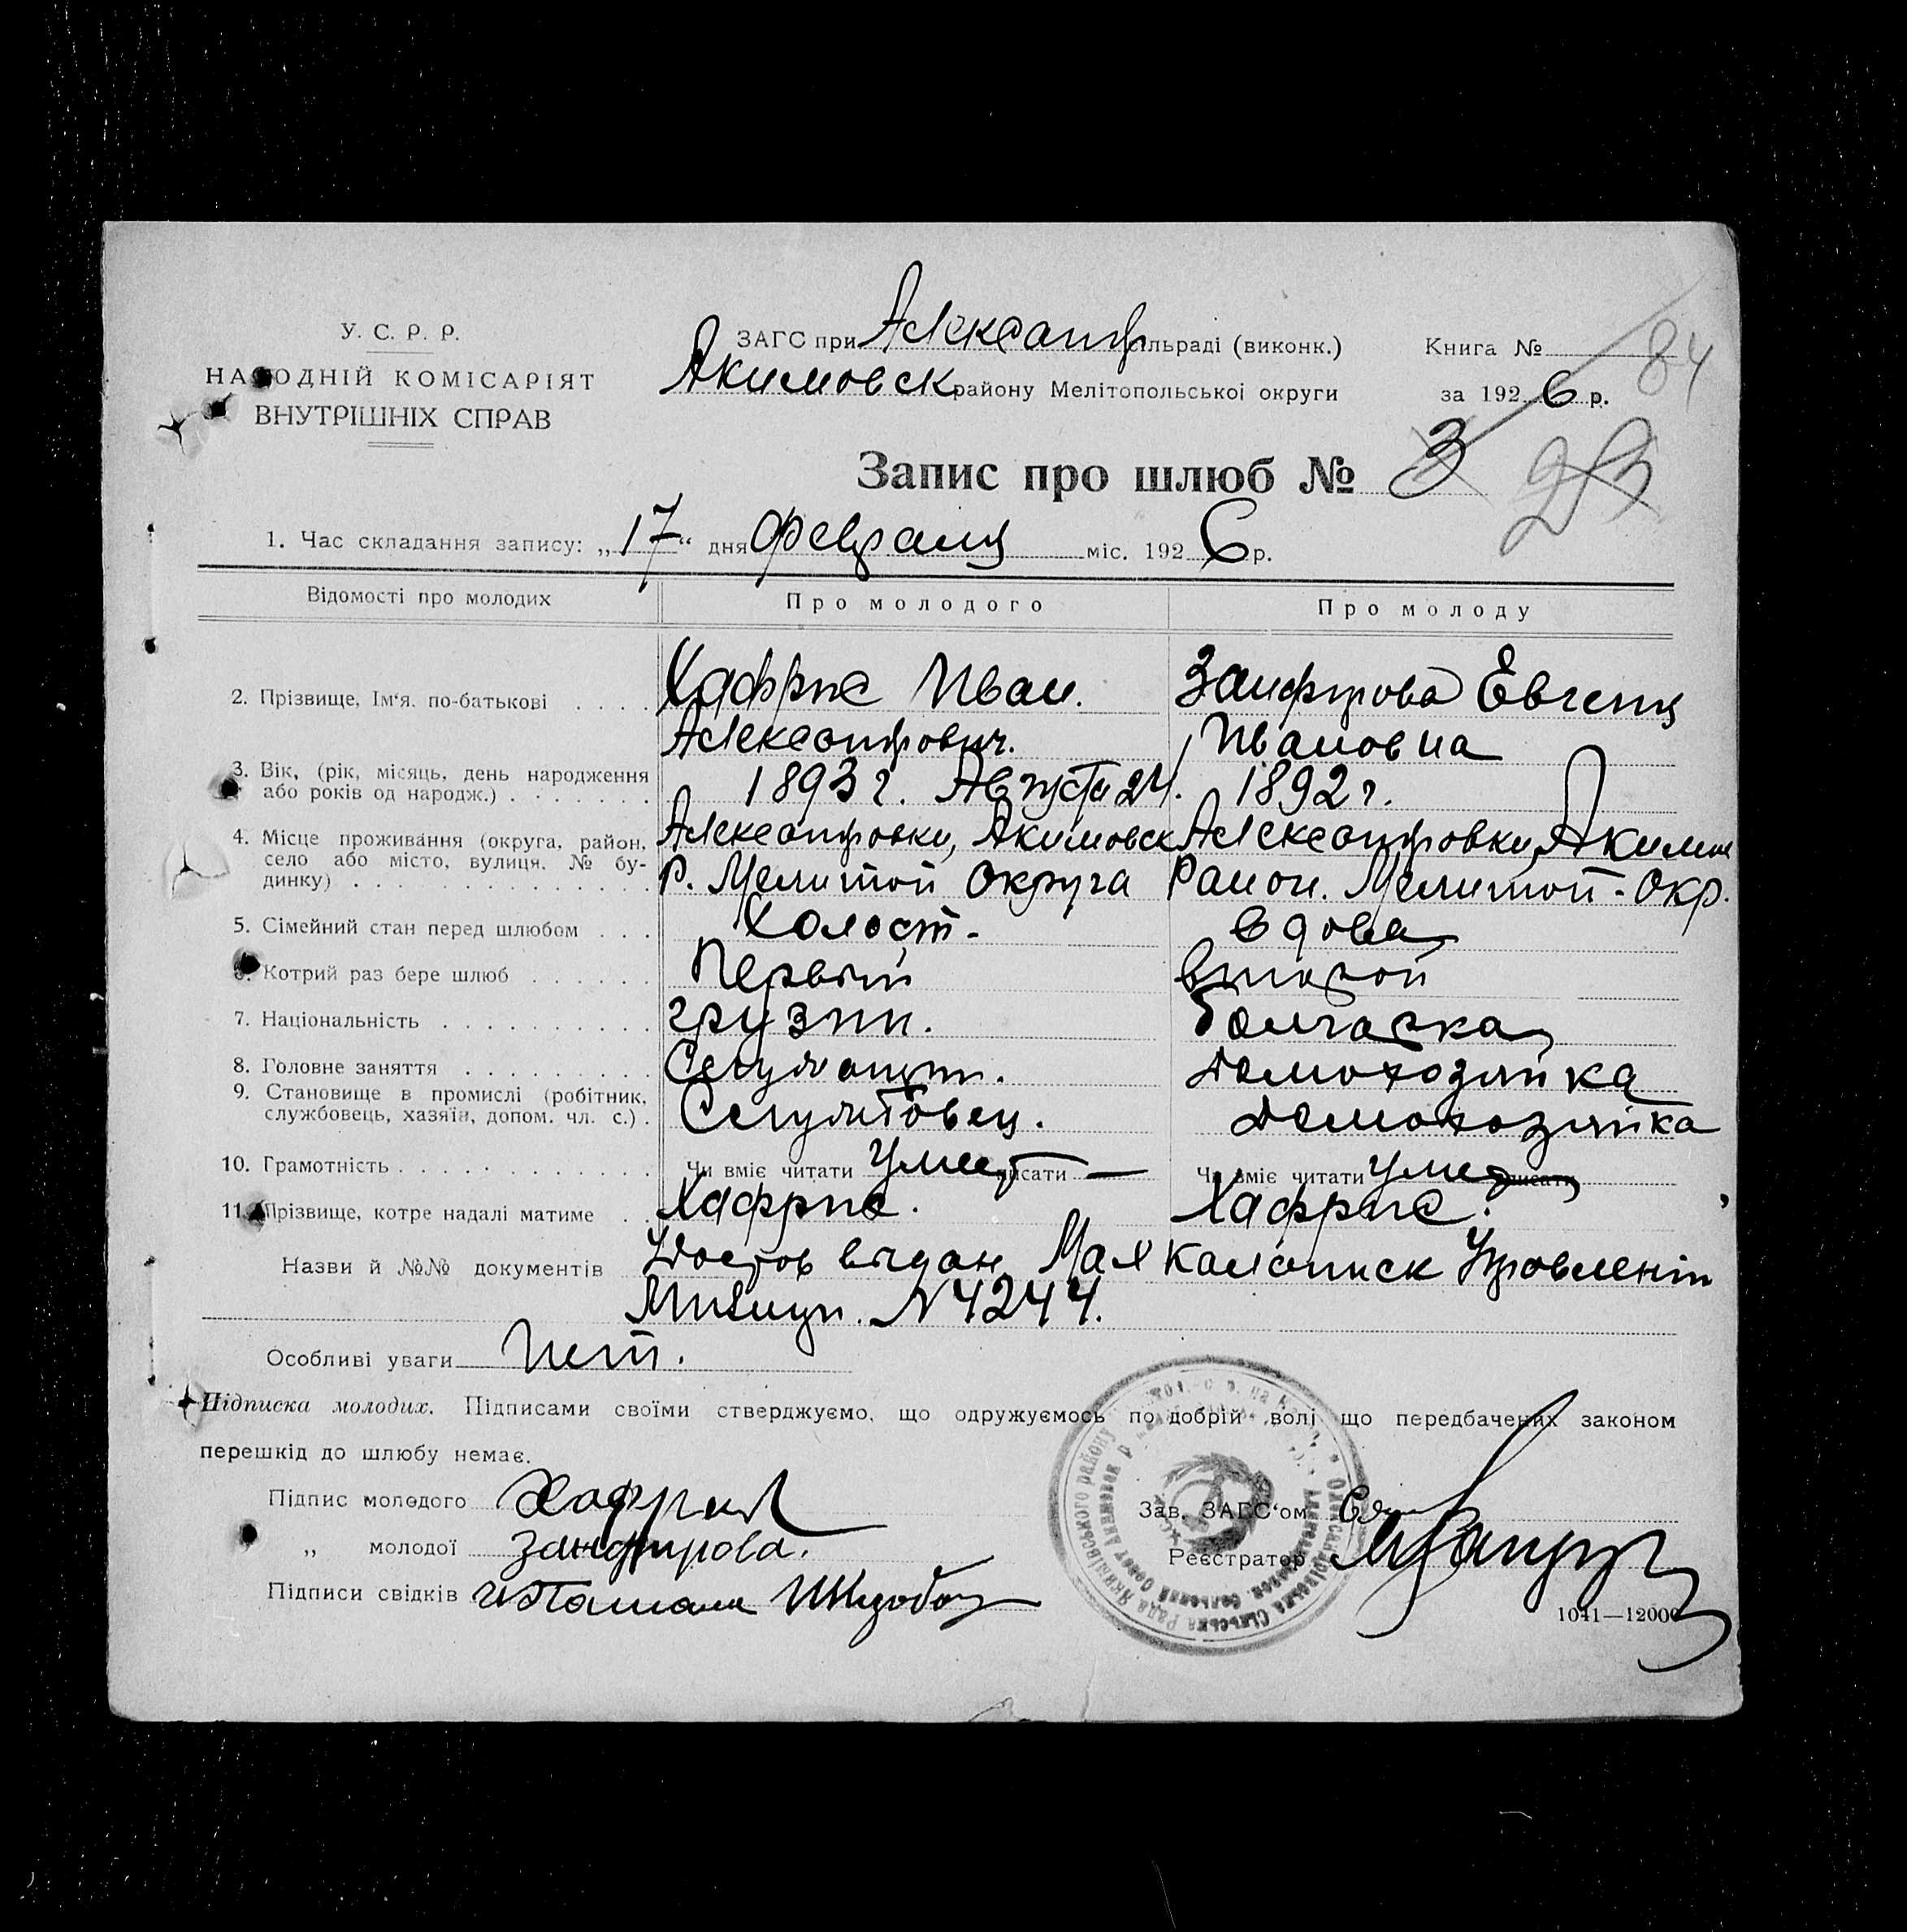 У. С. Р. Р.
НАРОДНІЙ КОМІСАРІЯТ
ВНУТРІШНІХ СПРАВ
ЗАГС при Александр сільраді (виконк.)
Акимовск району Мелітопольської округи
Книга №
84
за 1926 р.
Запис про шлюб № 3
1. Час складання запису: „17“ дня февраля міс. 1926 р.
Відомості про молодих Про молодого Про молоду
2. Прізвище, Ім'я, по-батькові Хафрис Иван Занфирова Евгения
Александрович. Ивановна
3. Вік, (рік, місяць, день народження
або років од народж.) 1893 г. Августа 24. 1892 г.
4. Місце проживання (округа, район, Александровки, Акимовск Александровки, Акимов
село або місто, вулиця, № бу-
динку) Р. Мелитоп Округа Район. Мелитоп-Окр.
5. Сімейний стан перед шлюбом Холост- вдова
6. Котрий раз бере шлюб Первый второй
7. Національність грузин. болгарка
8. Головне заняття домохозяйка
9. Становище в промислі (робітник,
службовець, хазяїн, допом. чл. с.) домохозяйка
10. Грамотність Чи вміє читати умеет писати — Чи вміє читати умеет писати
11. Прізвище, котре надалі матиме Хафрис. Хафрис.
Назви й №№ документів Удостов выдан
Милиции. N 4244.
Особливі уваги Нет.
Підписка молодих. Підписами своїми стверджуємо, що одружуємось по добрій волі що передбачених законом
перешкід до шлюбу немає.
Підпис молодого Хафрис
„ молодої Занфирова.
Підписи свідків
Зав. ЗАГС'ом
Реєстратор
1041—12000